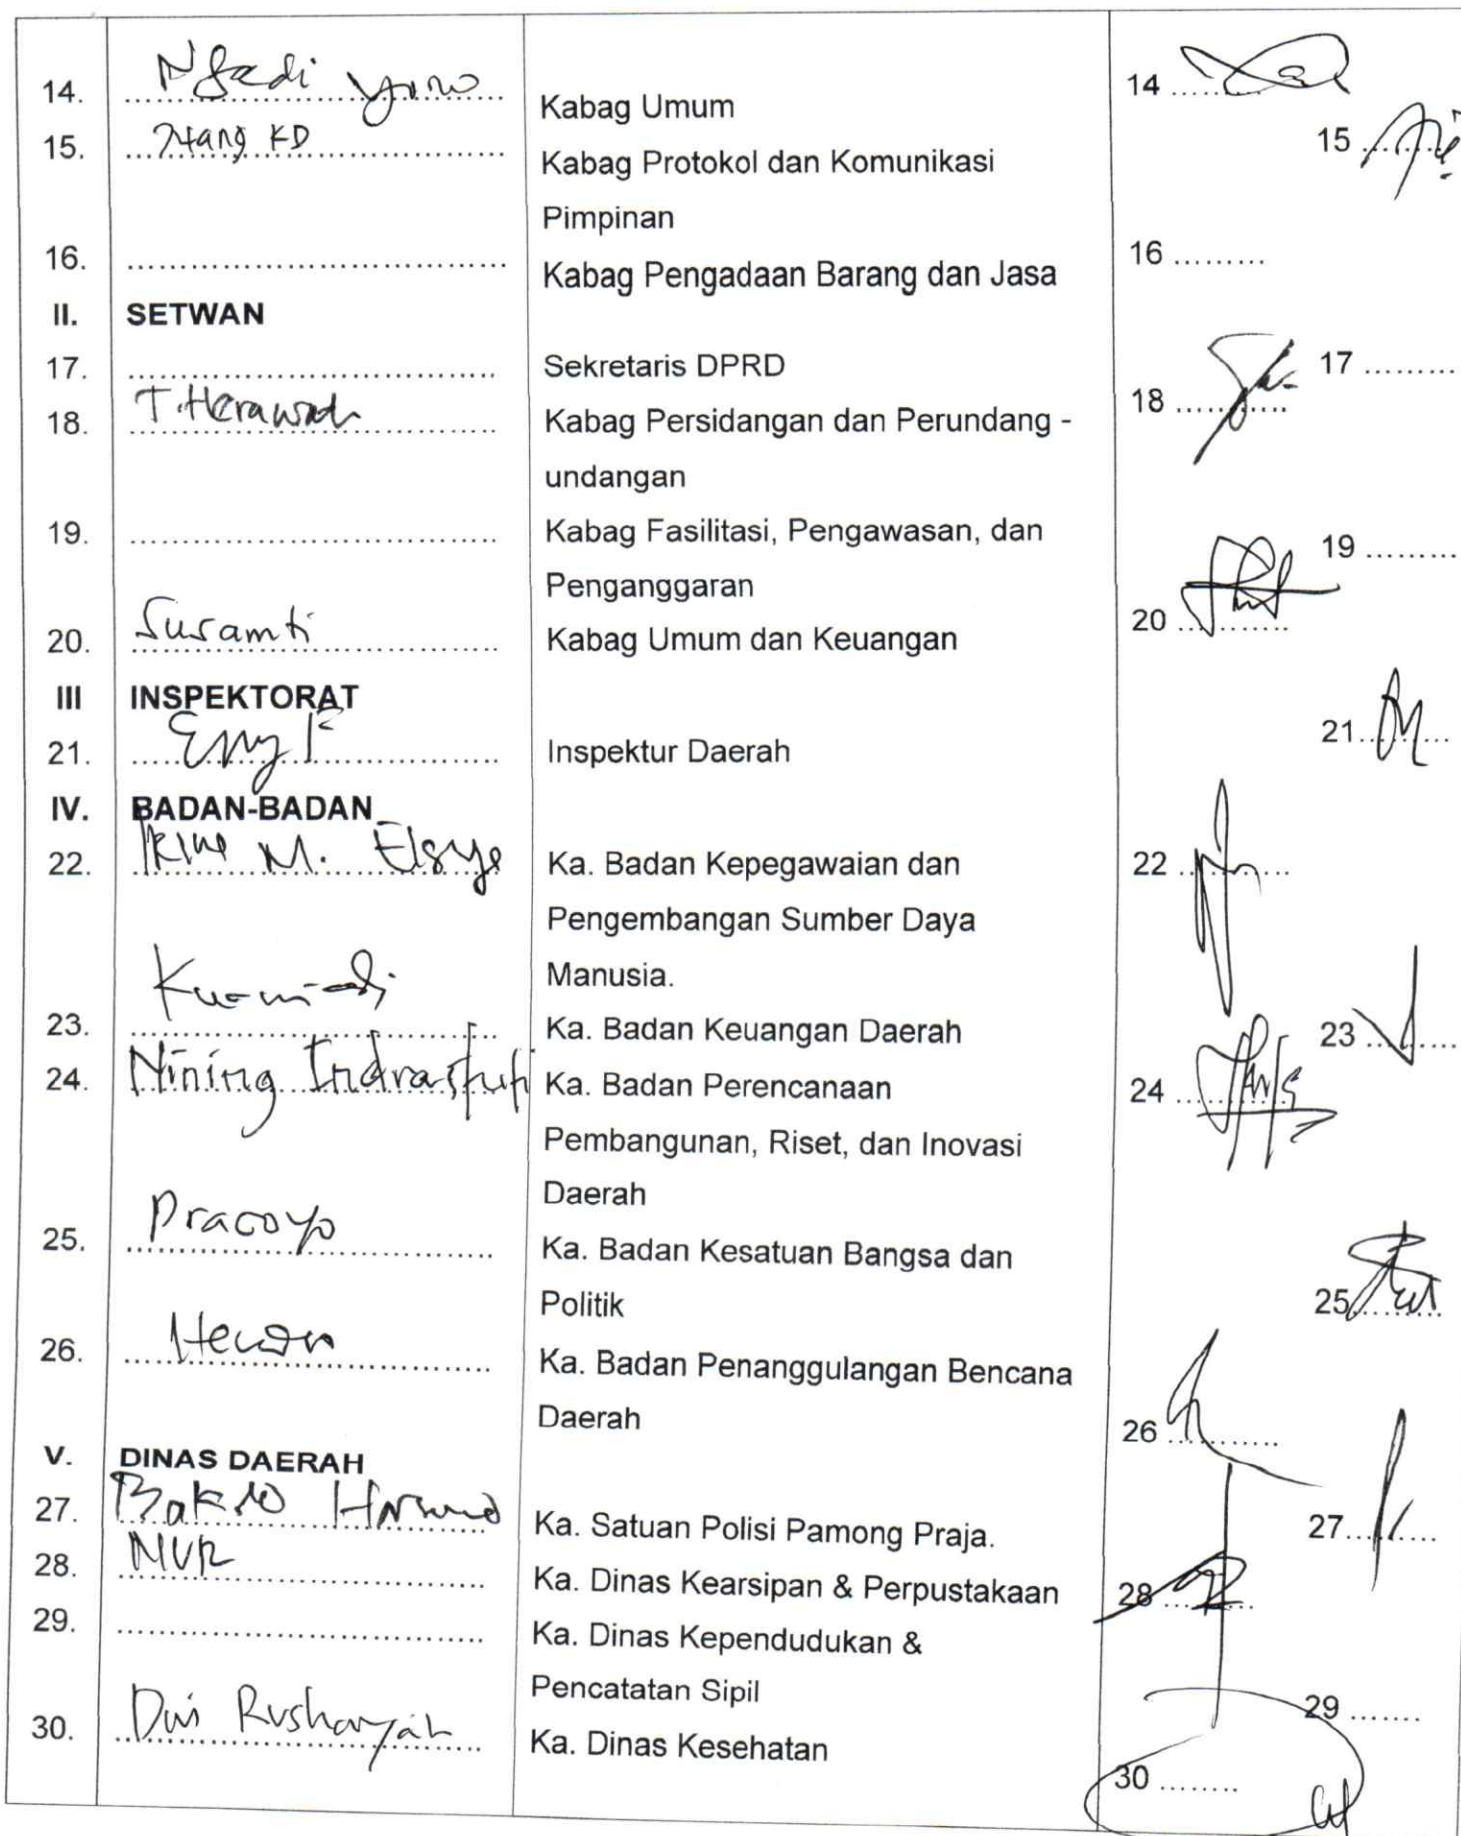 14. Ngadi yono Kabag Umum 14 .........
15. Kabag Protokol dan Komunikasi 15 .........
Pimpinan
16. .................................... Kabag Pengadaan Barang dan Jasa 16 .........
II. SETWAN
17. .................................... Sekretaris DPRD 17 .........
18. T. Herawati Kabag Persidangan dan Perundang - 18 .........
undangan
19. .................................... Kabag Fasilitasi, Pengawasan, dan 19 .........
Penganggaran
20. Suramti Kabag Umum dan Keuangan 20 .........
III INSPEKTORAT
21. Inspektur Daerah 21 .........
IV. BADAN-BADAN
22. M. Ka. Badan Kepegawaian dan 22 .........
Pengembangan Sumber Daya
Manusia.
23. Ka. Badan Keuangan Daerah 23 .........
24. Nining Indrastuti Ka. Badan Perencanaan 24 .........
Pembangunan, Riset, dan Inovasi
Daerah
25. Pracoyo Ka. Badan Kesatuan Bangsa dan 25 .........
Politik
26. Ka. Badan Penanggulangan Bencana 26 .........
Daerah
V. DINAS DAERAH
27. Ka. Satuan Polisi Pamong Praja. 27 .........
28. NUR Ka. Dinas Kearsipan & Perpustakaan 28 .........
29. .................................... Ka. Dinas Kependudukan & 29 .........
Pencatatan Sipil
30. Ka. Dinas Kesehatan 30 .........